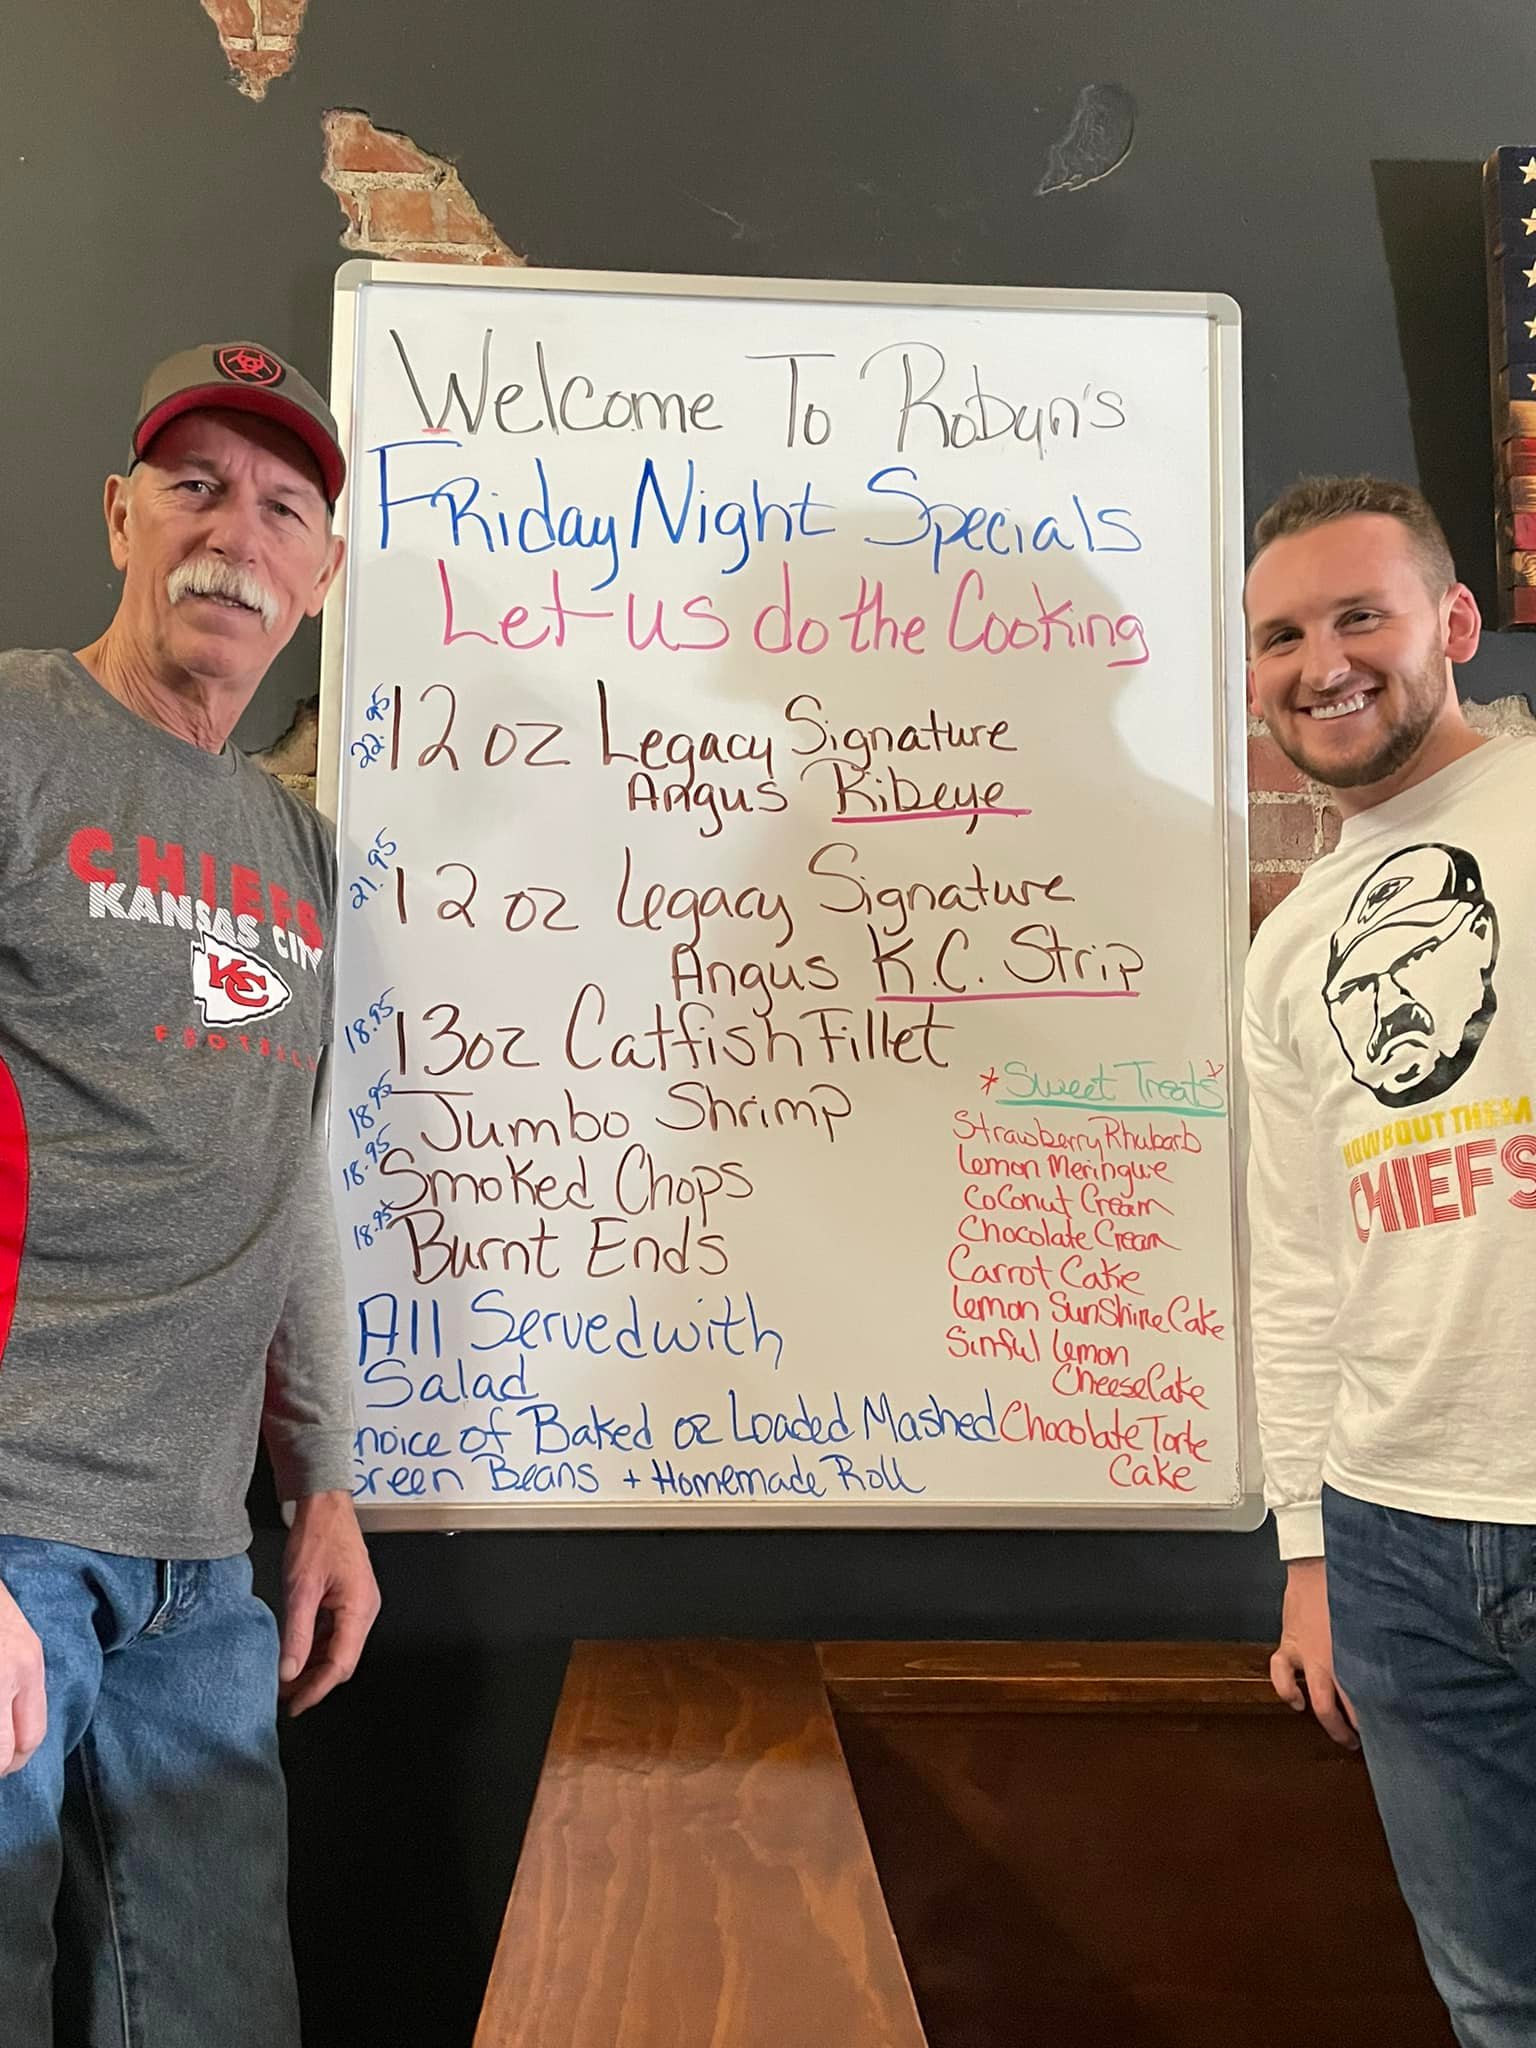 Welcome To Robyn's
Friday Night Specials
Let us do the Cooking
22.95 12 oz Legacy Signature
Angus Ribeye
21.95 12 oz Legacy Signature
Angus K.C. Strip
18.95 13oz Catfish Fillet
18.95 Jumbo Shrimp
18.95 Smoked Chops
18.95 Burnt Ends
All Served with
Salad
hoice of Baked or Loaded Mashed
Green Beans + Homemade Roll
*Sweet Treats*
Strawberry Rhubarb
Lemon Meringue
CoConut Cream
Chocolate Cream
Carrot Cake
Lemon SunShine Cake
Sinful Lemon
CheeseCake
Chocolate Torte
Cake
CHIEFS
KANSAS CITY
KC
FOOTBALL
HOW BOUT THEM
CHIEFS